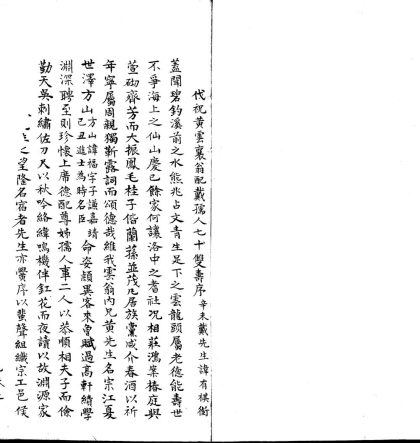 代祝黃雲襄翁配戴孺人七十雙壽序辛未戴先生諱有祺銜
蓋聞碧釣溪前之水熊兆占文青生足下之雲龍頭屬老德能壽世
不爭海上之仙山慶已餘家何讓洛中之耆社况相莊鴻案椿庭與
萱砌齊芳而大振鳳毛桂子偕蘭蓀並茂凡居族黨咸介春酒以祈
年寧屬周親獨靳露詞而頌德哉維我雲翁內兄黃先生名宗江夏
世澤方山方山諱福字子謙嘉靖己丑進士為時名臣命姿頴異客來曾賦過高軒績學
淵深聘至則珍懷上席德配尊姊孺人事二人以恭順相夫子而儉
勤天吳刺繡佐刀尺以秋吟絡緯鳴機伴釭花而夜讀以故淵源家
之望隆名宿者先生亦黌序以蜚聲組織宗工邑侯